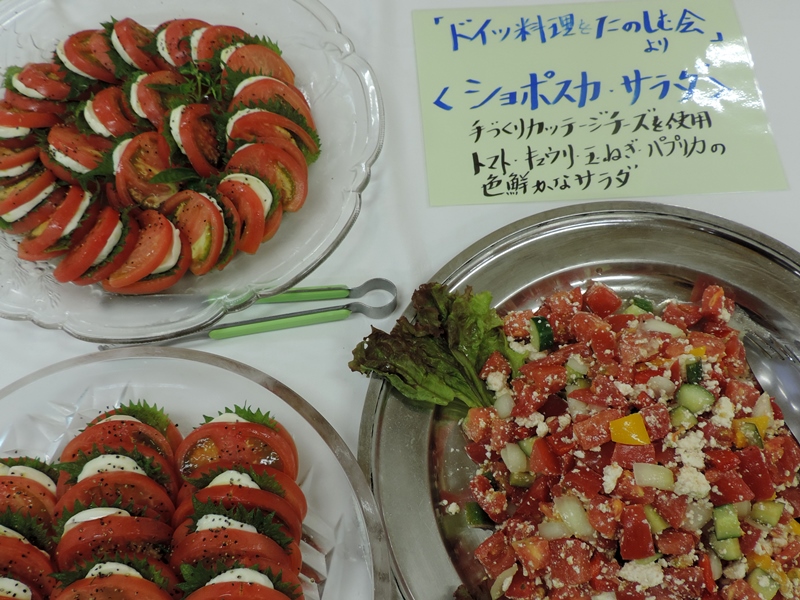 「ドイツ料理をたのしむ会」
より
<ショポスカ・サラダ>
手づくりカッテージチーズを使用
トマト・キュウリ・玉ねぎ・パプリカの
色鮮かなサラダ